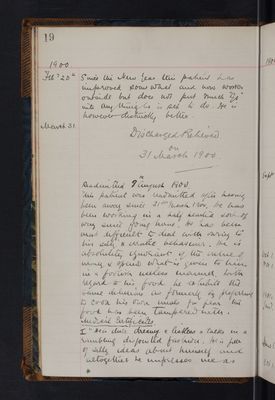 19
1900
Feb 20th Since the New Year this patient has
improved somewhat and now works
outside but does not put much "go"
into anything he is set to do. He is
however distinctly better.
March 31. Discharged Relieved
on
31 March 1900.
Readmitted 9th August 1900
This patient was readmitted after having
been away since 31st March 1900, he has
been working in a half hearted sort of
way since going home. He has been
most difficult to deal with owing to
his silly & erratic behaviour. He is
absolutely ignorant of the value of
money & spends what is given to him
in a foolish useless manner. With
regard to his food he exhibits the
same delusions as formerly by preferring
to cook his own meals for fear the
food has been tampered with.
Medical Certificates
I "He is dull dreamy & listless & talks in a
rambling disjointed fashion. He is full
of silly ideas about himself and
altogether he impresses me as
Sept
Oct 1